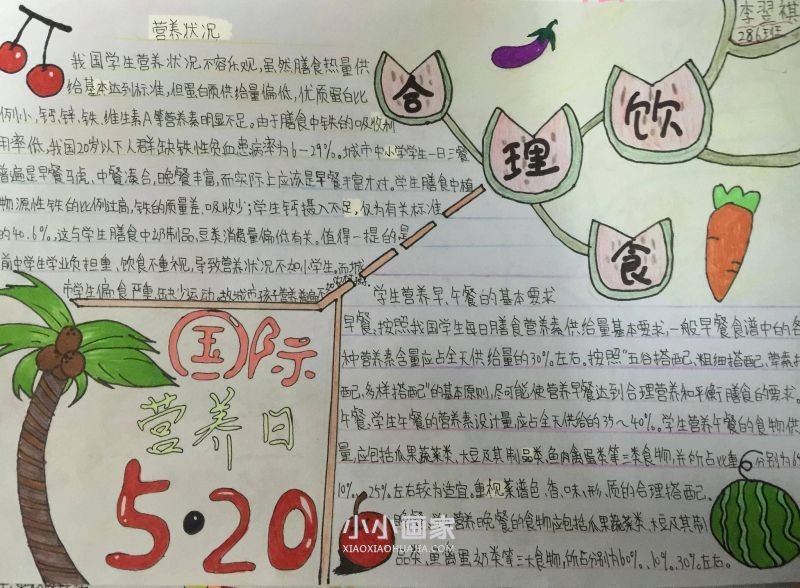 营养状况
我国学生营养状况不容乐观,虽然膳食热量供
给基本达到标准,但蛋白质供给量偏低,优质蛋白比
例小,钙,锌,铁,维生素A等营养素明显不足。由于膳食中铁的吸收利
用率低,我国20岁以下人群缺铁性贫血患病率为6-29%。城市中小学学生一日三餐
普遍是早餐马虎,中餐凑合,晚餐丰富,而实际上应该是早餐丰富才对。学生膳食中植
物源性铁的比例过高,铁的质量差,吸收少;学生钙摄入不足,仅为有关标准
的40.6%,这与学生膳食中奶制品,豆类消费量偏低有关。值得一提的是
前中学生学业负担重,饮食不重视,导致营养状况不如小学生。而城
市学生偏食严重,缺少运动,
合
理
饮
食
李翌祺
286班
国际
营养日
5·20
学生营养早、午餐的基本要求
早餐,按照我国学生每日膳食营养素供给量基本要求,一般早餐食谱中的各
种营养素含量应占全天供给量的30%左右。按照“五谷搭配、粗细搭配、荤素搭
配,多样搭配”的基本原则,尽可能使营养早餐达到合理营养和平衡膳食的要求。
午餐:学生午餐的营养素设计量,应占全天供给的35~40%。学生营养午餐的食物供
量,应包括瓜果蔬菜类、大豆及其制品类,鱼肉禽蛋类等三类食物,并所占比重分别为6
10%、25%左右较为适宜。重视菜谱色、香、味、形、质的合理搭配。
晚餐:学生营养晚餐的食物应包括瓜果蔬菜类、大豆及其制
品类,果禽蛋奶类等三大食物,所占分别为60%、10%、30%左右。
小小画家
XIAOXIAOHUAJIA.COM